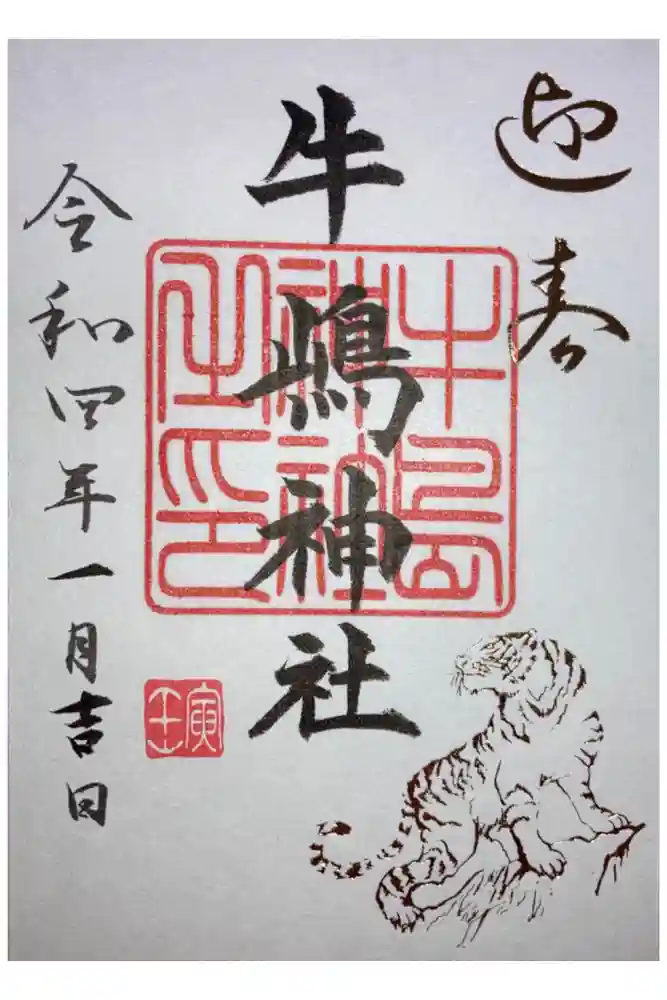 迎春
牛嶋神社
牛島神社之印
壬寅
令和四年一月吉日